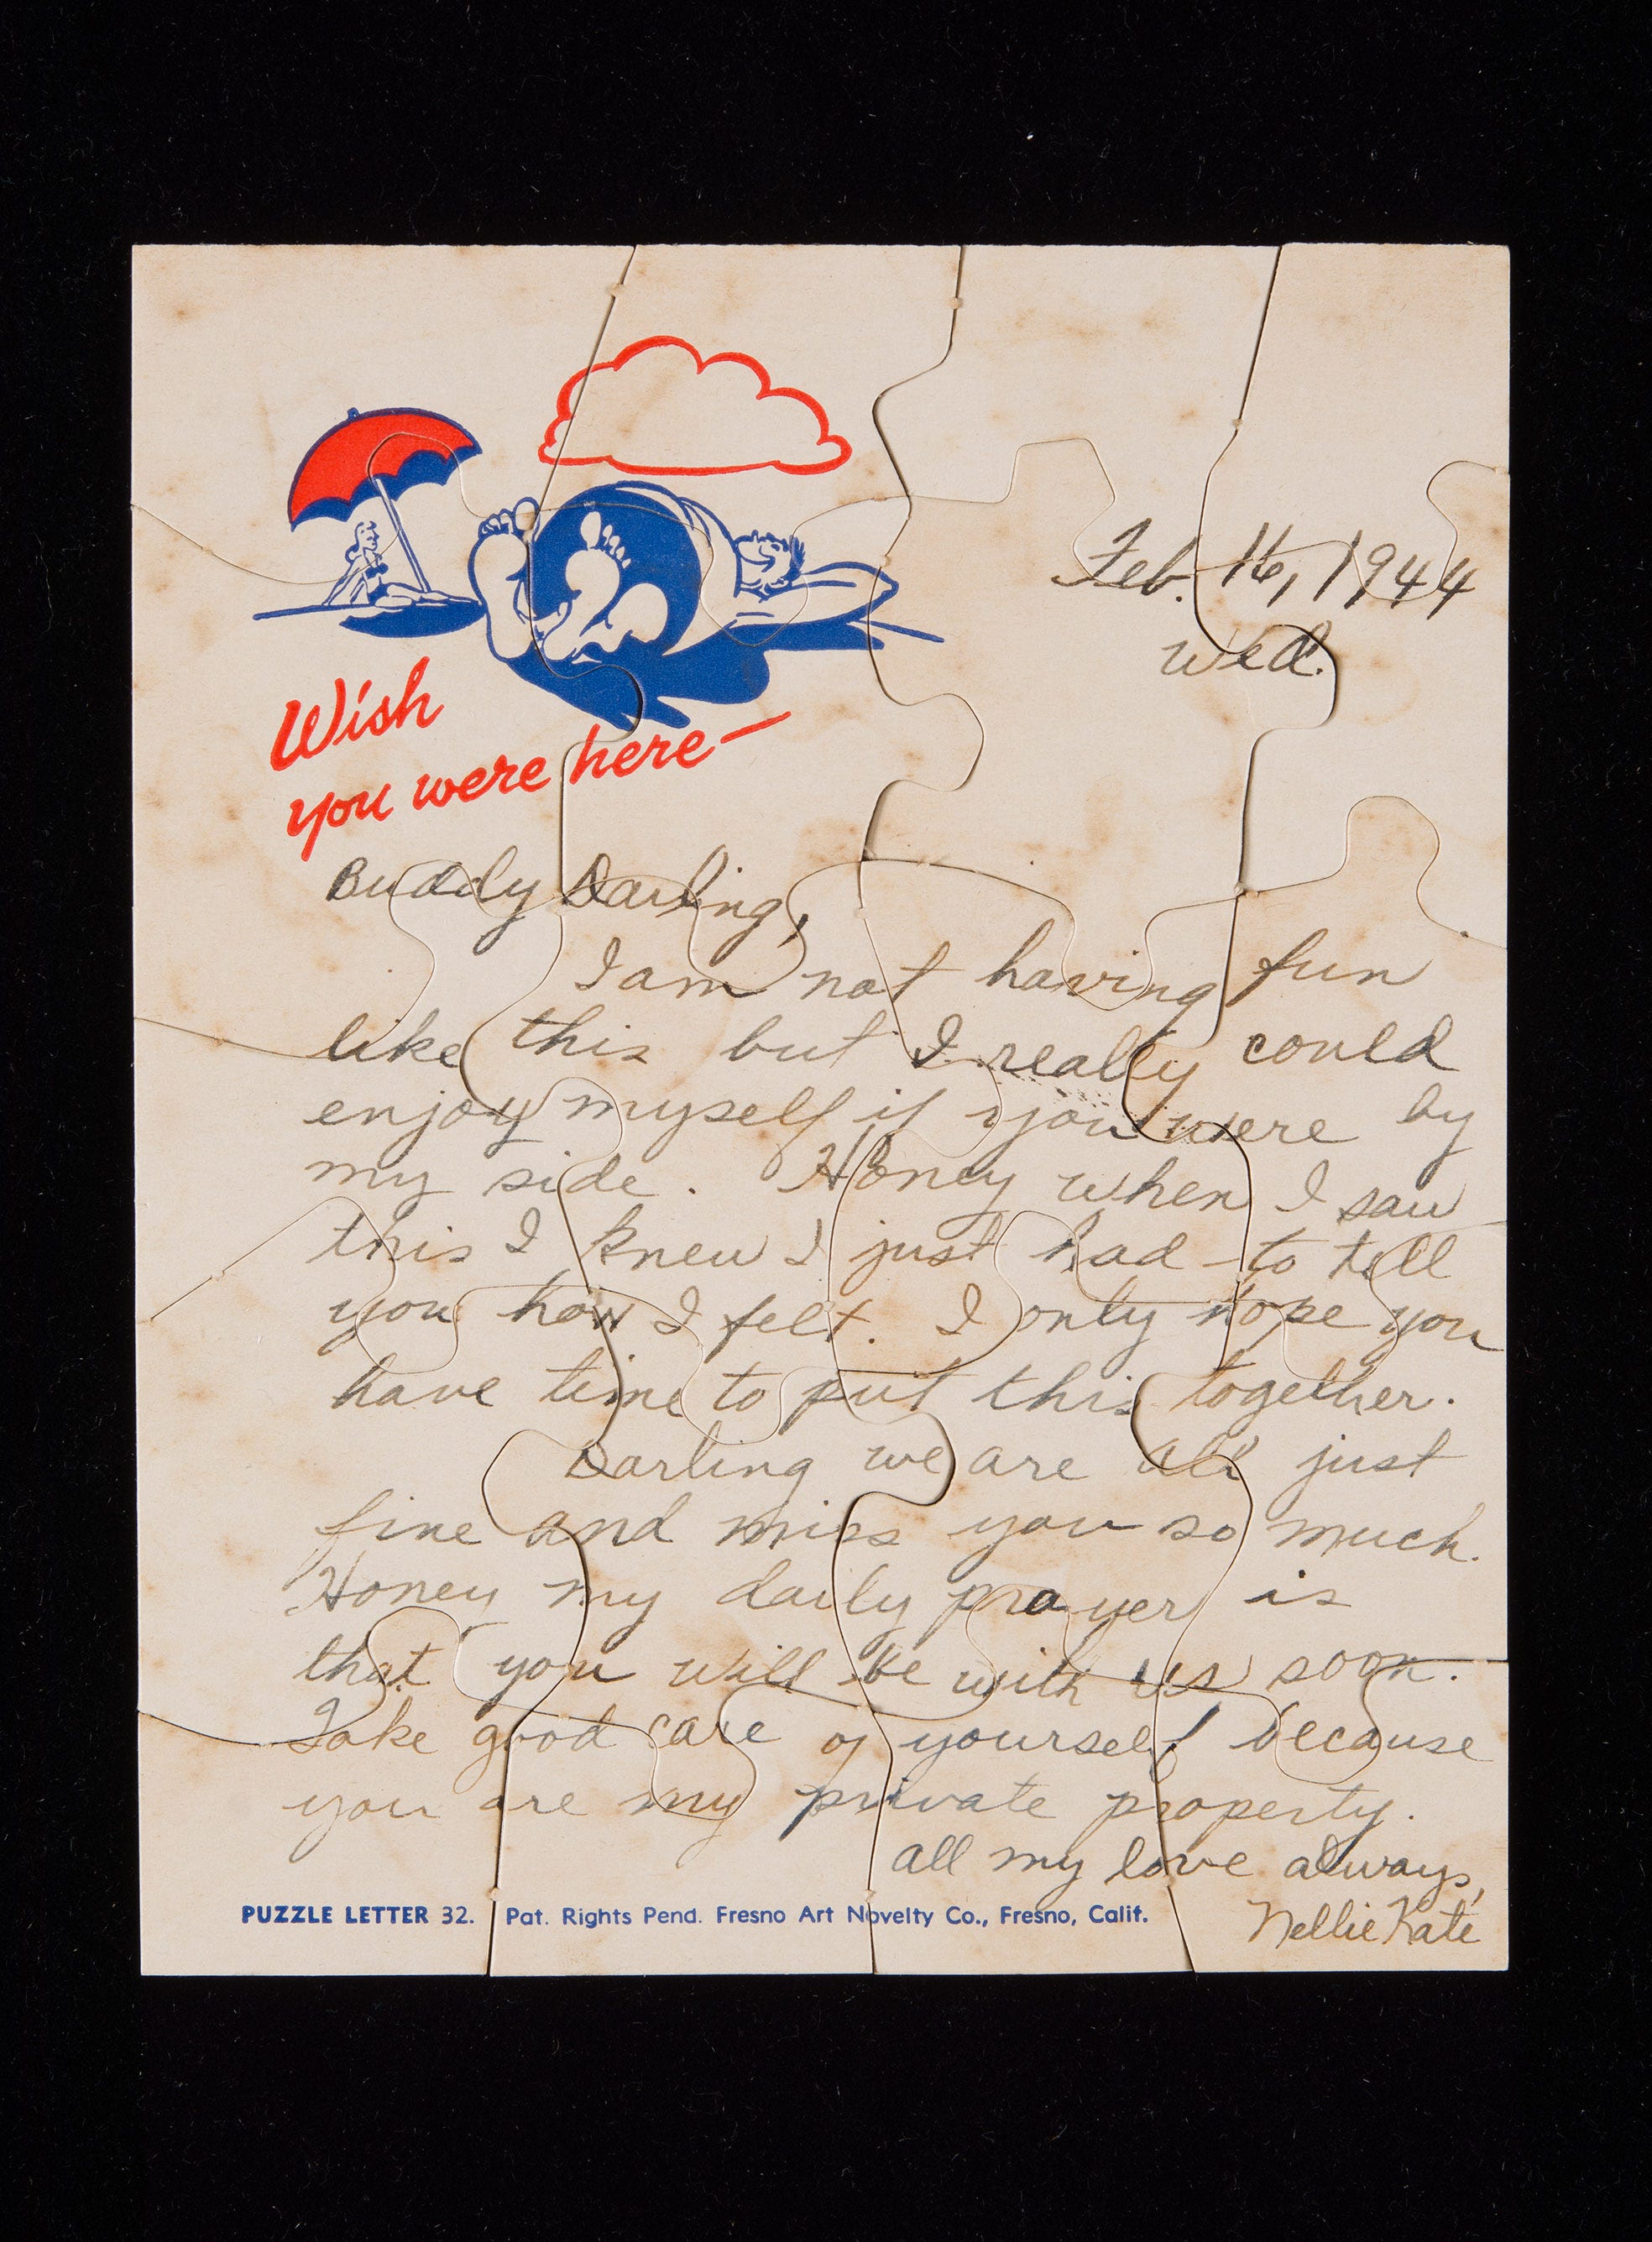 Wish
you were here—
Feb. 16, 1944
Wed.
Buddy Darling,
I am not having fun
like this but I really could
enjoy myself if you were by
my side. Honey when I saw
this I knew I just had to tell
you how I felt. I only hope you
have time to put this together.
Darling we are all just
fine and miss you so much.
Honey my daily prayer is
that you will be with us soon.
Take good care of yourself because
you are my private property.
All my love always,
Nellie Kate
PUZZLE LETTER 32. Pat. Rights Pend. Fresno Art Novelty Co., Fresno, Calif.